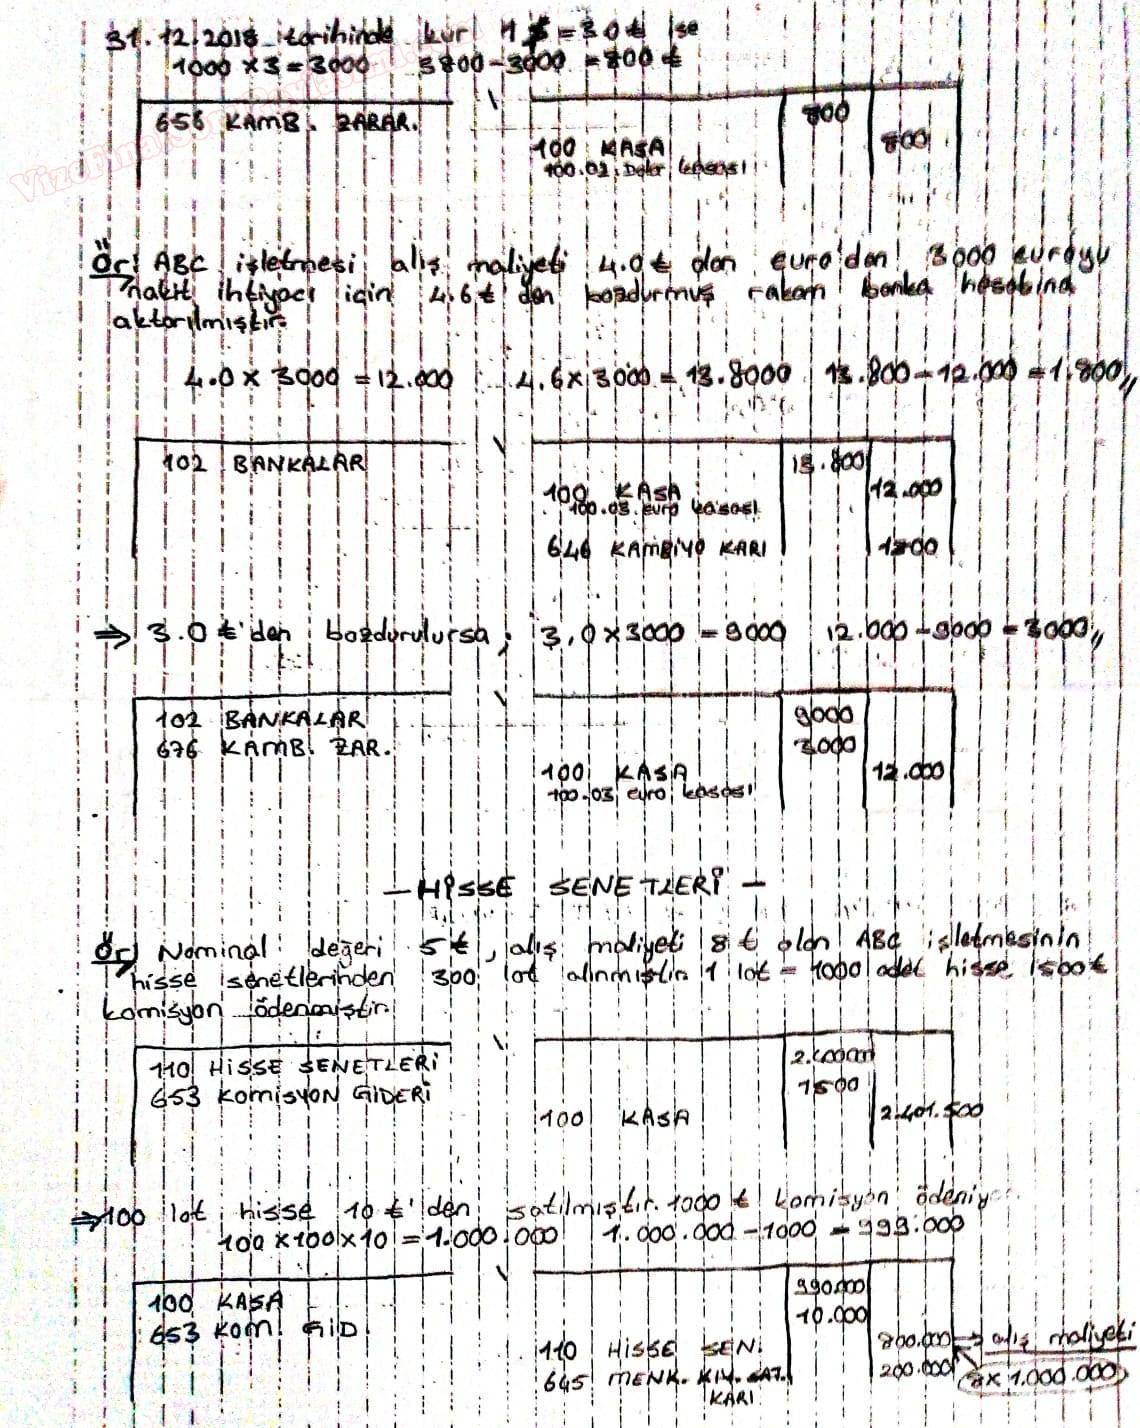 31.12.2018 tarihinde kur 1 $ = 3.0 ₺ ise
1000 x 3 = 3000 3800 - 3000 = 800 ₺
656 KAMB. ZARAR. 800
100 KASA 800
100.02. Dolar kasası
Ör/ ABC işletmesi alış maliyeti 4.0 ₺ olan euro'dan 3000 euroyu
nakit ihtiyacı için 4.6 ₺'den bozdurmuş rakam banka hesabına
aktarılmıştır.
4.0 x 3000 = 12.000 4.6 x 3000 = 13.8000 13.800 - 12.000 = 1.800,,
102 BANKALAR 13.800
100 KASA 12.000
100.03. euro kasası
646 KAMBİYO KARI 1800
⇒ 3.0 ₺'den bozdurulursa; 3,0 x 3000 = 9000 12.000 - 9000 = 3000,,
102 BANKALAR 9000
676 KAMB. ZAR. 3000
100 KASA 12.000
100.03 euro kasası
- HİSSE SENETLERİ -
Ör/ Nominal değeri 5 ₺, alış maliyeti 8 ₺ olan ABC işletmesinin
hisse senetlerinden 300 lot alınmıştır. 1 lot = 1000 adet hisse 1500 ₺
komisyon ödenmiştir.
110 HİSSE SENETLERİ 2.400.000
653 KOMİSYON GİDERİ 1500
100 KASA 2.401.500
⇒ 100 lot hisse 10 ₺'den satılmıştır. 1000 ₺ komisyon ödeniyor.
100 x 100 x 10 = 1.000.000 1.000.000 - 1000 = 999.000
100 KASA 990.000
653 KOM. GİD. 10.000
110 HİSSE SEN. 800.000 → alış maliyeti
645 MENK. KIY. SAT. 200.000 8 x 1.000.000
KARI